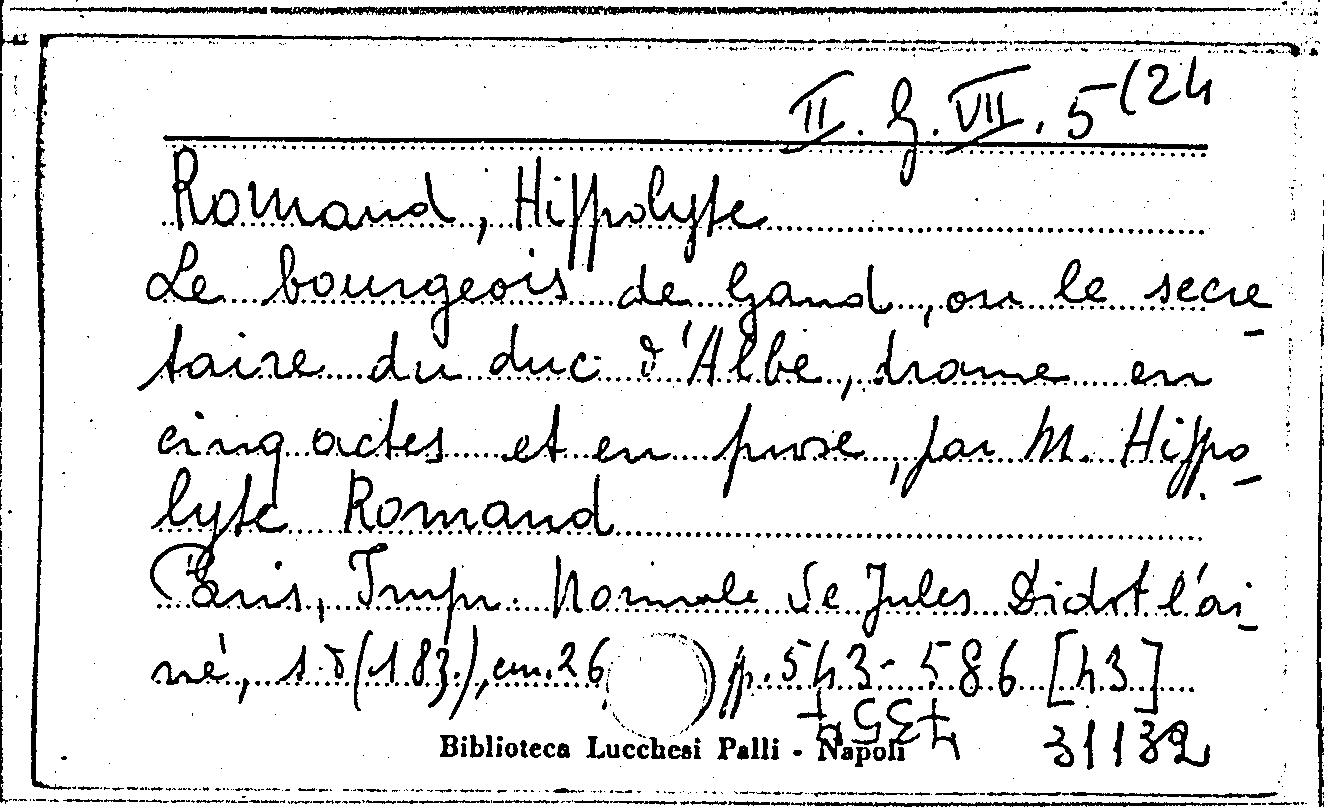 II. G. VII. 5(24
Romand, Hippolyte
Le bourgeois de Gand, ou le secre-
taire du duc d'Albe, drame en
cinq actes et en prose, par M. Hippo-
lyte Romand
Paris, Imp. Normale de Jules Didot l'ai-
né, s.d (183.), cm. 26 p. 543-586 [43]
31132
Biblioteca Lucchesi Palli - Napoli